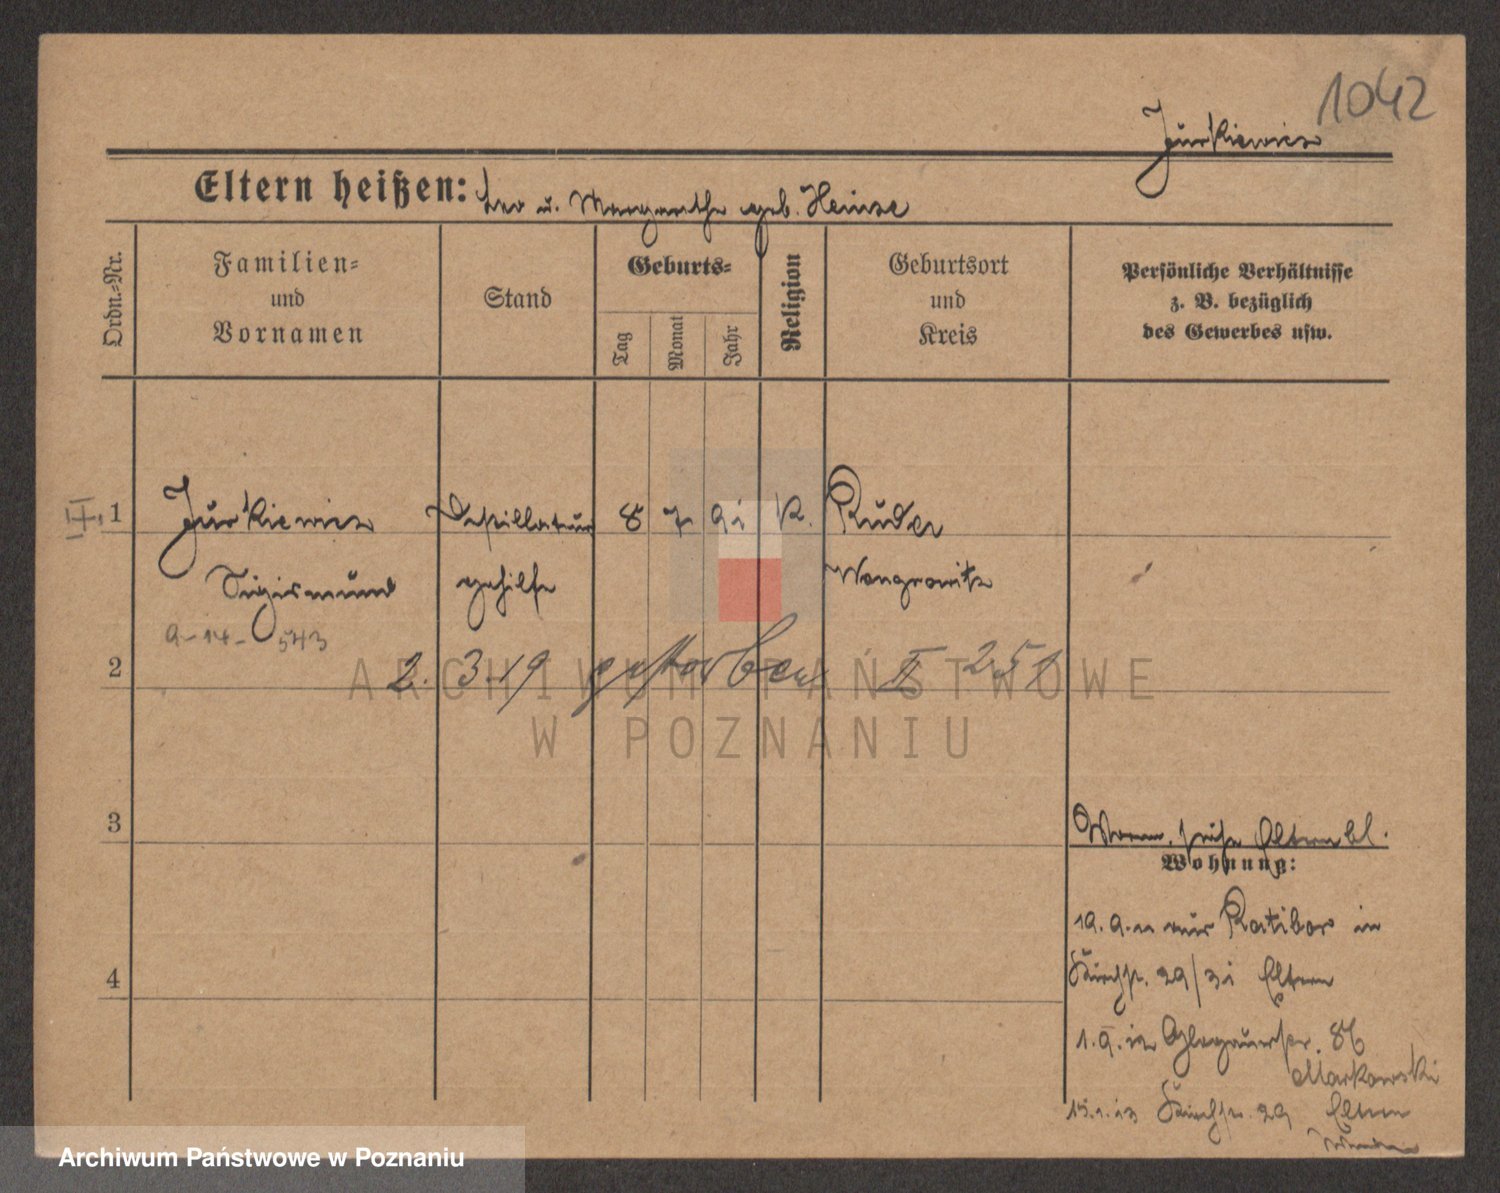 1042
Jurkiewicz
Eltern heißen: Leo u. Margarethe geb. Heinze
Ordn.-Nr.
Familien-
und
Vornamen
Stand
Geburts-
Tag
Monat
Jahr
Religion
Geburtsort
und
Kreis
Persönliche Verhältnisse
z. B. bezüglich
des Gewerbes usw.
1 Jurkiewicz Destillateur 8 7 91 k.
Sigismund gehilfe Wongrowitz
a-14- 543
2 2. 3. 19 gestorben II 251
3
siehe Elternbl.
Wohnung:
19. 9. 11 aus Ratibor in
29/31 Eltern
4
Glogauerstr. 86
Markowski
15.1.13 29 Eltern
ARCHIWUM PAŃSTWOWE
W POZNANIU
Archiwum Państwowe w Poznaniu